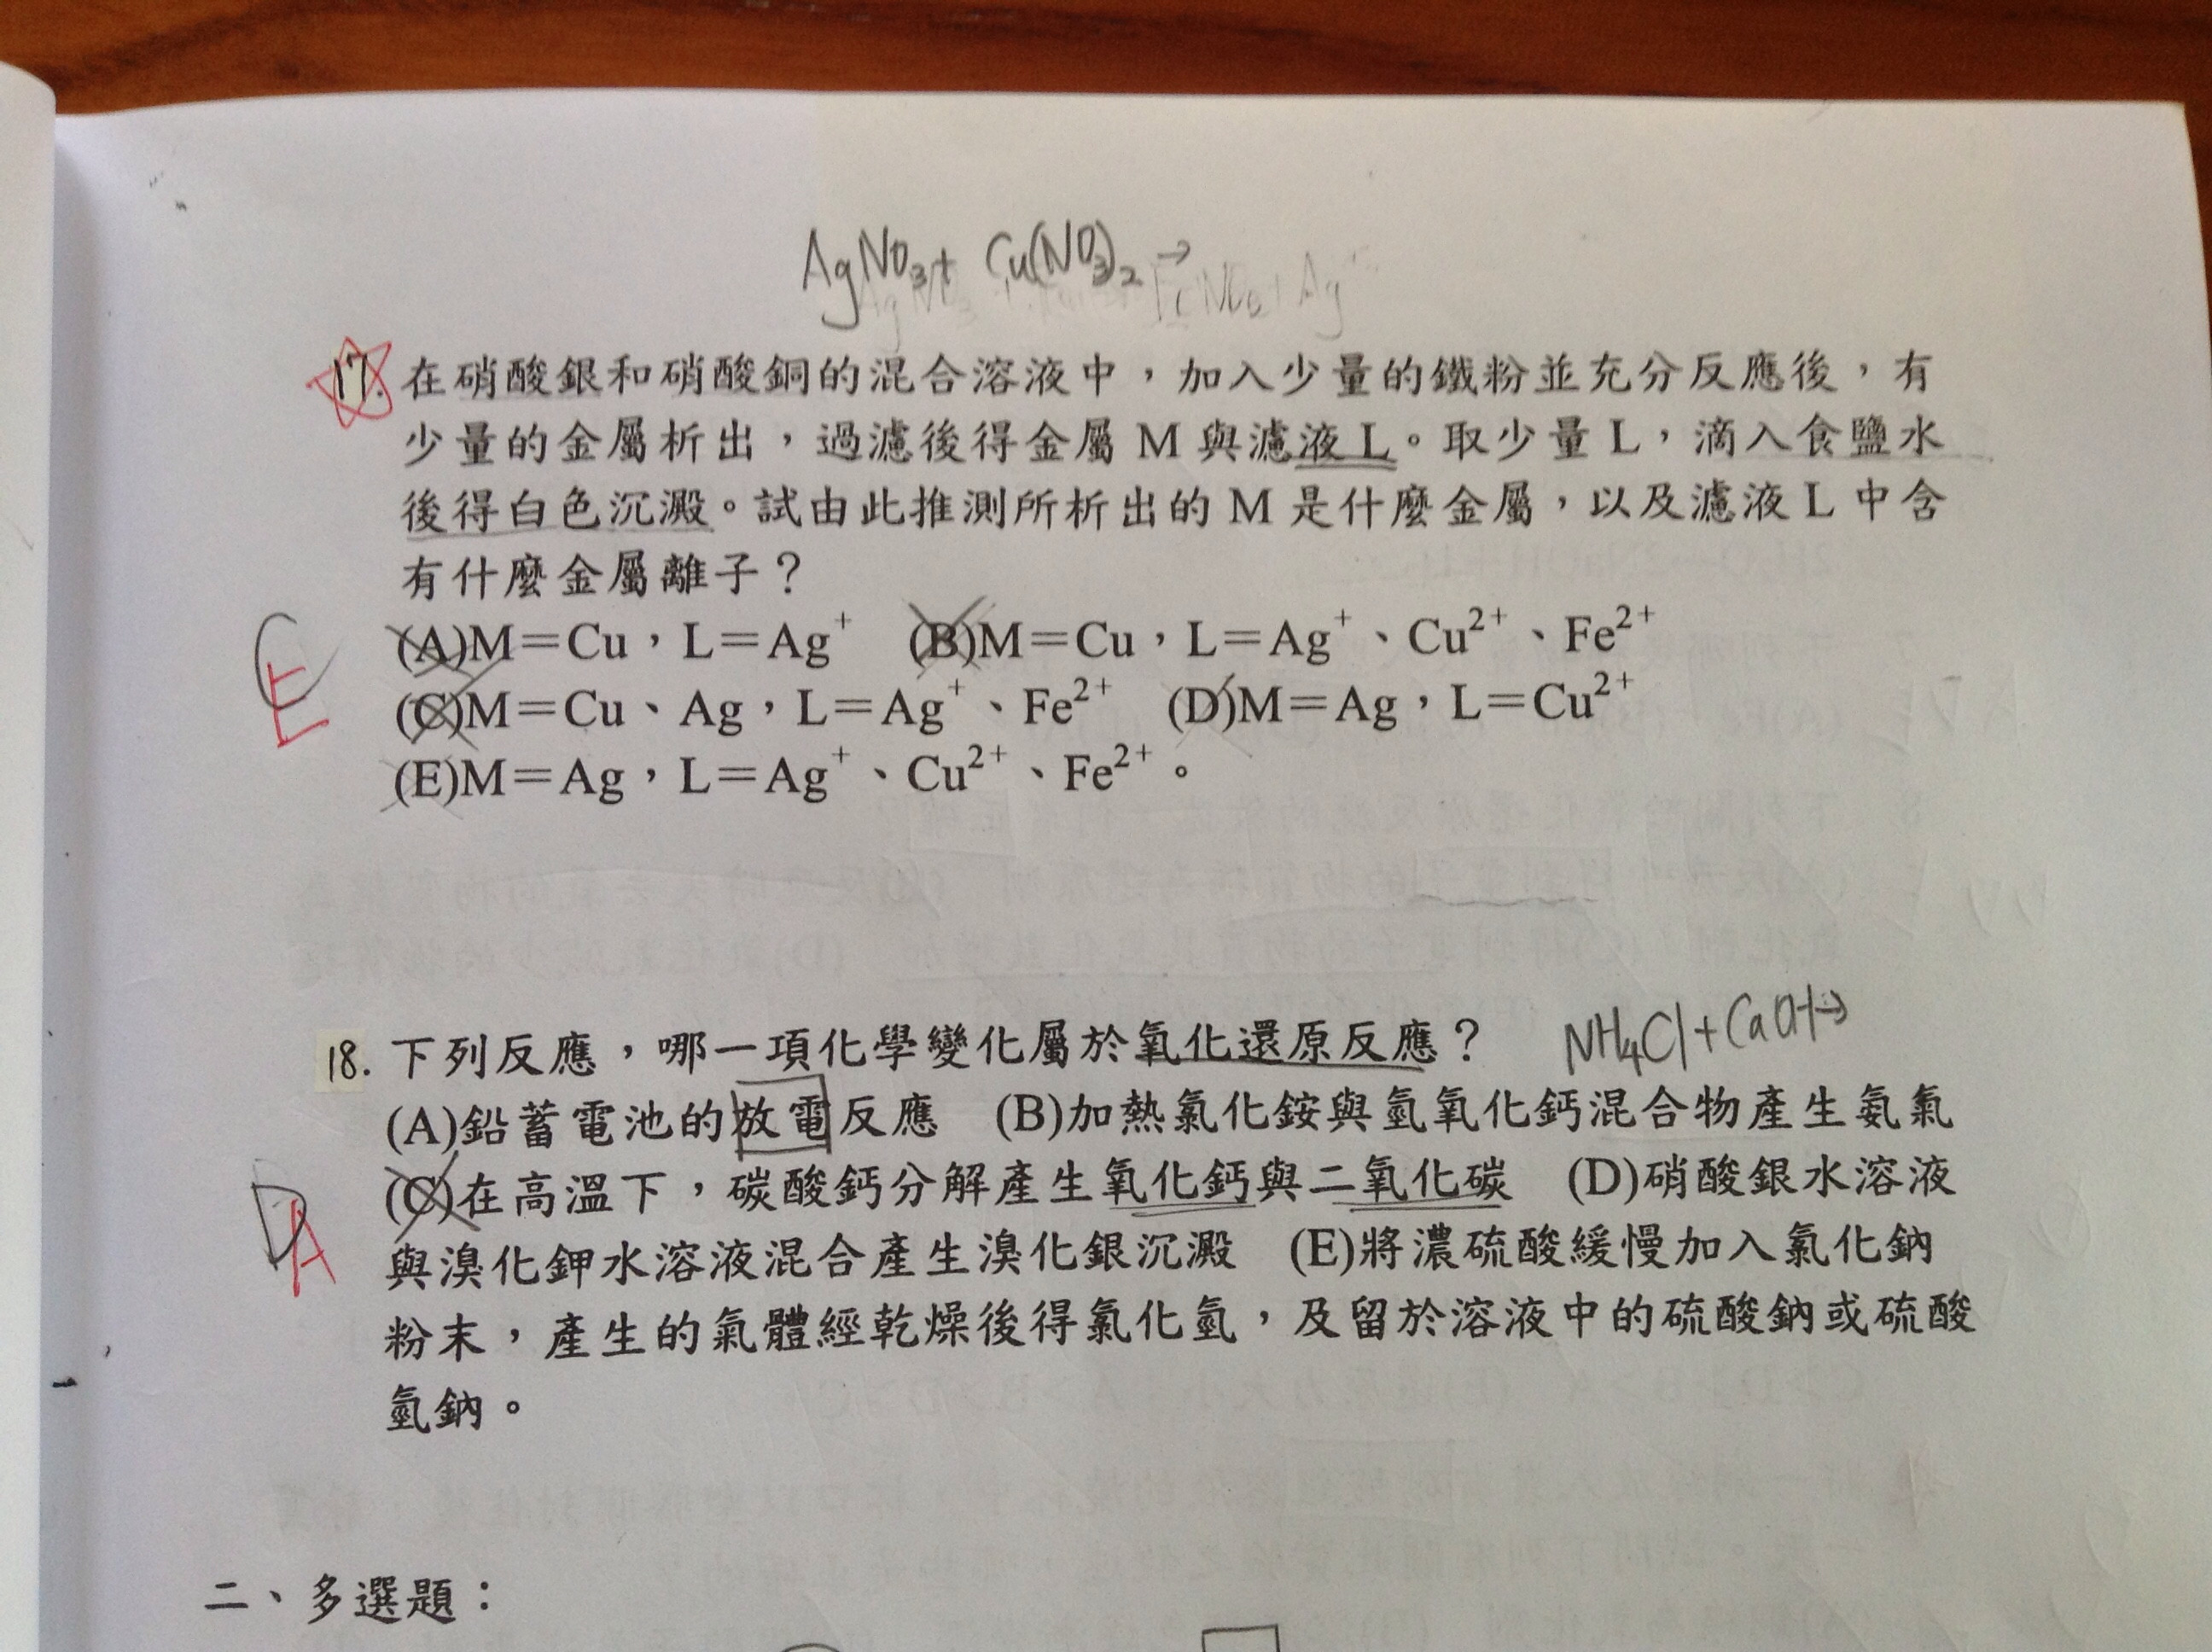 AgNO₃+ Cu(NO₃)₂→
17. 在硝酸銀和硝酸銅的混合溶液中，加入少量的鐵粉並充分反應後，有
少量的金屬析出，過濾後得金屬 M 與濾液 L。取少量 L，滴入食鹽水
後得白色沉澱。試由此推測所析出的 M 是什麼金屬，以及濾液 L 中含
有什麼金屬離子？
C
E
(A)M＝Cu，L＝Ag⁺ (B)M＝Cu，L＝Ag⁺、Cu²⁺、Fe²⁺
(C)M＝Cu、Ag，L＝Ag⁺、Fe²⁺ (D)M＝Ag，L＝Cu²⁺
(E)M＝Ag，L＝Ag⁺、Cu²⁺、Fe²⁺。
NH₄Cl+CaOH→
18. 下列反應，哪一項化學變化屬於氧化還原反應？
(A)鉛蓄電池的放電反應 (B)加熱氯化銨與氫氧化鈣混合物產生氨氣
D
A
(C)在高溫下，碳酸鈣分解產生氧化鈣與二氧化碳 (D)硝酸銀水溶液
與溴化鉀水溶液混合產生溴化銀沉澱 (E)將濃硫酸緩慢加入氯化鈉
粉末，產生的氣體經乾燥後得氯化氫，及留於溶液中的硫酸鈉或硫酸
氫鈉。
二、多選題：